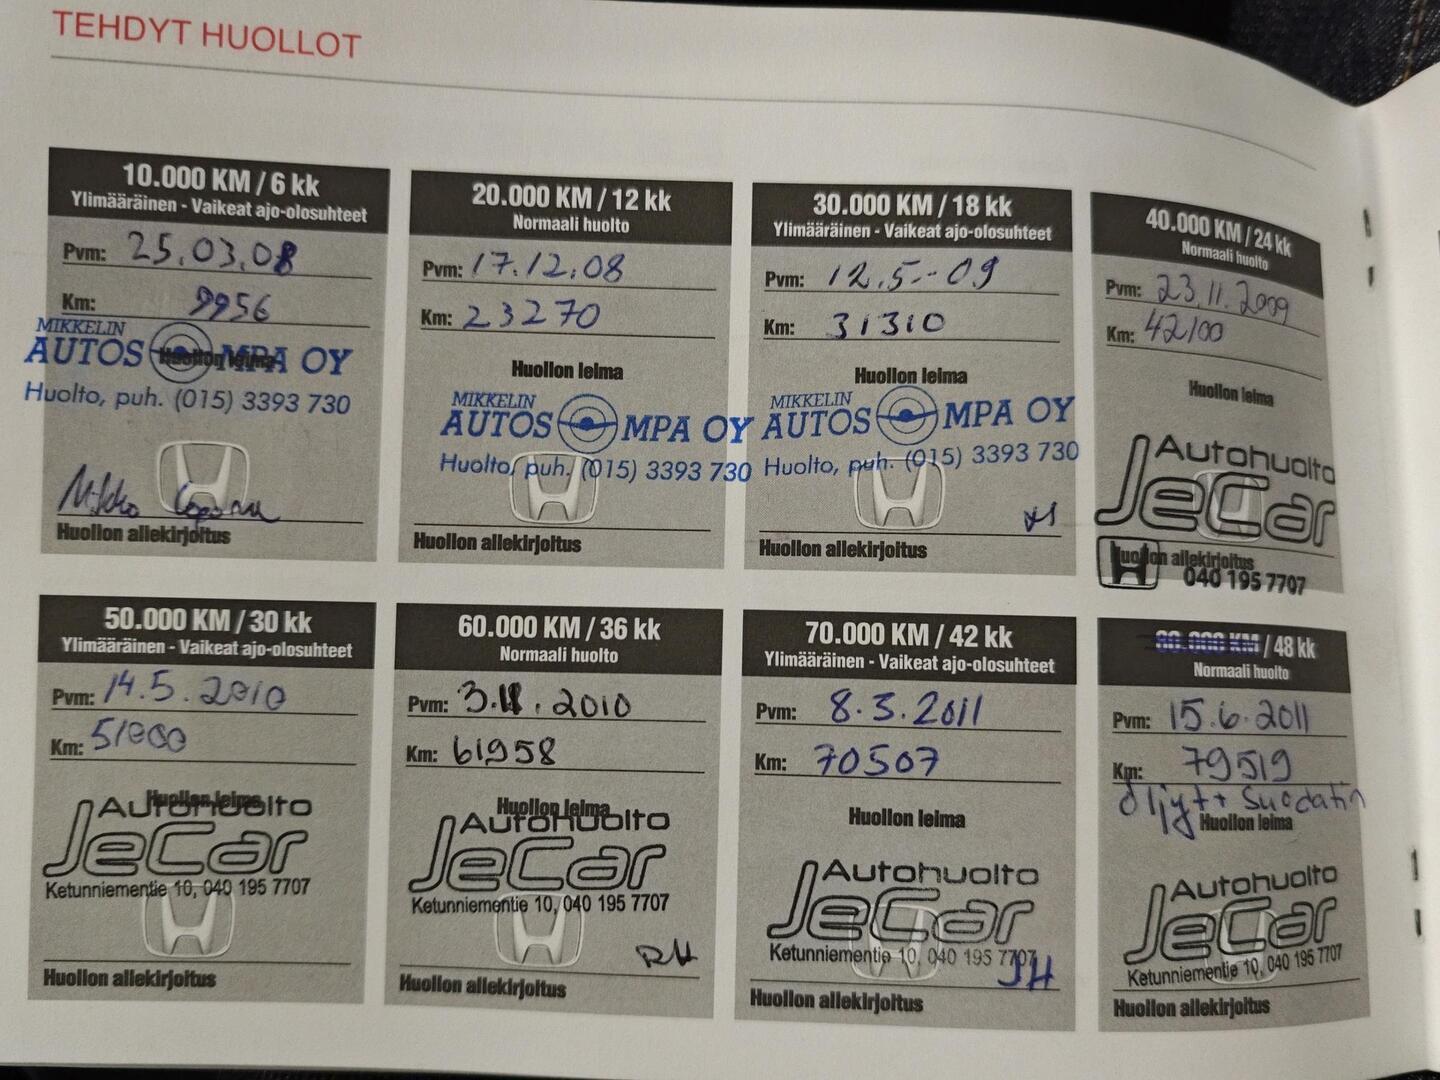 TEHDYT HUOLLOT
10.000 KM / 6 kk
Ylimääräinen - Vaikeat ajo-olosuhteet
Pvm: 25.03.08
Km: 9956
MIKKELIN
AUTOS MPA OY
Huollon leima
Huolto, puh. (015) 3393 730
Mikko
Huollon allekirjoitus
20.000 KM / 12 kk
Normaali huolto
Pvm: 17.12.08
Km: 23270
Huollon leima
MIKKELIN
AUTOS MPA OY
Huolto, puh. (015) 3393 730
Huollon allekirjoitus
30.000 KM / 18 kk
Ylimääräinen - Vaikeat ajo-olosuhteet
Pvm: 12.5.-09
Km: 31310
Huollon leima
MIKKELIN
AUTOS MPA OY
Huolto, puh. (015) 3393 730
Huollon allekirjoitus
40.000 KM / 24 kk
Normaali huolto
Pvm: 23.11.2009
Km: 42100
Huollon leima
Autohuolto
JeCar
Huollon allekirjoitus
040 195 7707
50.000 KM / 30 kk
Ylimääräinen - Vaikeat ajo-olosuhteet
Pvm: 14.5.2010
Km: 51000
Huollon leima
Autohuolto
JeCar
Ketunniementie 10, 040 195 7707
Huollon allekirjoitus
60.000 KM / 36 kk
Normaali huolto
Pvm: 3.11.2010
Km: 61958
Huollon leima
Autohuolto
JeCar
Ketunniementie 10, 040 195 7707
RH
Huollon allekirjoitus
70.000 KM / 42 kk
Ylimääräinen - Vaikeat ajo-olosuhteet
Pvm: 8.3.2011
Km: 70507
Huollon leima
Autohuolto
JeCar
Ketunniementie 10, 040 195 7707
JH
Huollon allekirjoitus
80.000 KM / 48 kk
Normaali huolto
Pvm: 15.6.2011
Km: 79519
Öljyt + Suodatin
Huollon leima
Autohuolto
JeCar
Ketunniementie 10, 040 195 7707
Huollon allekirjoitus